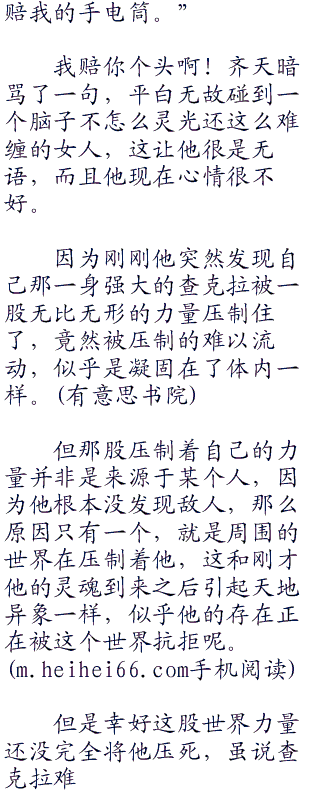 赔我的手电筒。”
我赔你个头啊！齐天暗
骂了一句，平白无故碰到一
个脑子不怎么灵光还这么难
缠的女人，这让他很是无
语，而且他现在心情很不
好。
因为刚刚他突然发现自
己那一身强大的查克拉被一
股无比无形的力量压制住
了，竟然被压制的难以流
动，似乎是凝固在了体内一
样。(有意思书院)
但那股压制着自己的力
量并非是来源于某个人，因
为他根本没发现敌人，那么
原因只有一个，就是周围的
世界在压制着他，这和刚才
他的灵魂到来之后引起天地
异象一样，似乎他的存在正
在被这个世界抗拒呢。
(m.heihei66.com手机阅读)
但是幸好这股世界力量
还没完全将他压死，虽说查
克拉难